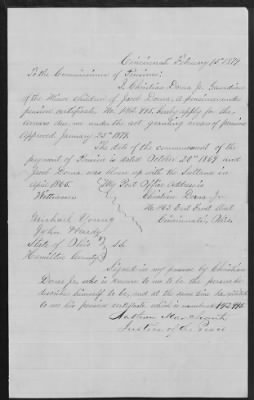 Cincinnati February 15th 1879
To the Commissioner of Pensions:
I Christian Dorna Jr. Guardian
of the Minor children of Jacob Dorna, a pensioner under
pension certificate No. 142.995, hereby apply for the
arrears due me under the act granting arrears of pensions
approved January 25th 1879.
The date of the commencement of the
payment of Pension is dated October 20th 1869 and
Jacob Dorna was blown up with the Sultana in
April 1865. My Post Office Address is
Witnesses Christian Dorna Jr.
No 163 East Front Street
Michael Young Cincinnati, Ohio
John Hardy
State of Ohio ss.
Hamilton County
Signed in my presence by Christian
Dorna Jr. who is known to me to be the person he
describes himself to be, and at the same time he exhibited
to me his pension certificate which is numbered 142.995
Nathan Marchant
Justice of the Peace